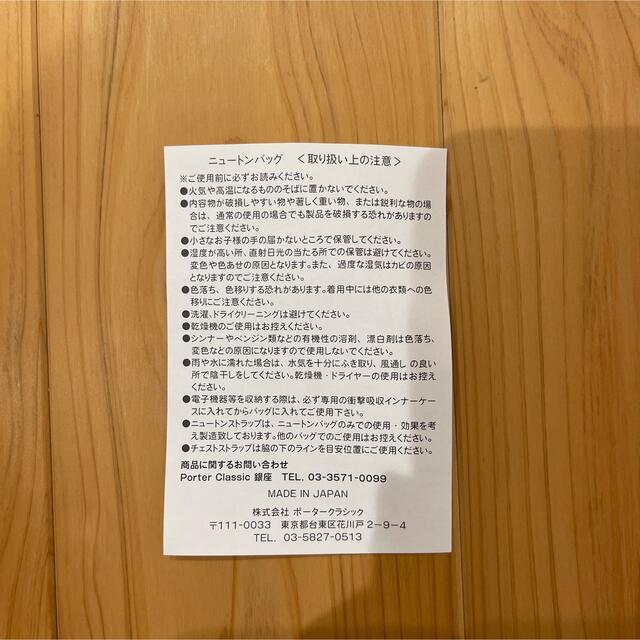 ニュートンバッグ ＜取り扱い上の注意＞
※ご使用前に必ずお読みください。
●火気や高温になるもののそばに置かないでください。
●内容物が破損しやすい物や著しく重い物、または鋭利な物の場
合は、通常の使用の場合でも製品を破損する恐れがありますの
でご注意ください。
●小さなお子様の手の届かないところで保管してください。
●湿度が高い所、直射日光の当たる所での保管は避けてください。
変色や色あせの原因となります。また、過度な湿気はカビの原因
となりますのでご注意ください。
●色落ち、色移りする恐れがあります。着用中には他の衣類への色
移りにご注意ください。
●洗濯、ドライクリーニングは避けてください。
●乾燥機のご使用はお控えください。
●シンナーやベンジン類などの有機性の溶剤、漂白剤は色落ち、
変色などの原因になりますので使用しないでください。
●雨や水に濡れた場合は、水気を十分にふき取り、風通しの良い
所で陰干しをしてください。乾燥機・ドライヤーの使用はお控え
ください。
●電子機器等を収納する際は、必ず専用の衝撃吸収インナーケー
スに入れてからバッグに入れてご使用下さい。
●ニュートンストラップは、ニュートンバッグのみでの使用・効果を考
え製造致しております。他のバッグでのご使用はお控えください。
●チェストストラップは脇の下のラインを目安位置にご使用ください。
商品に関するお問い合わせ
Porter Classic 銀座 TEL. 03-3571-0099
MADE IN JAPAN
株式会社 ポータークラシック
〒111-0033 東京都台東区花川戸2-9-4
TEL. 03-5827-0513